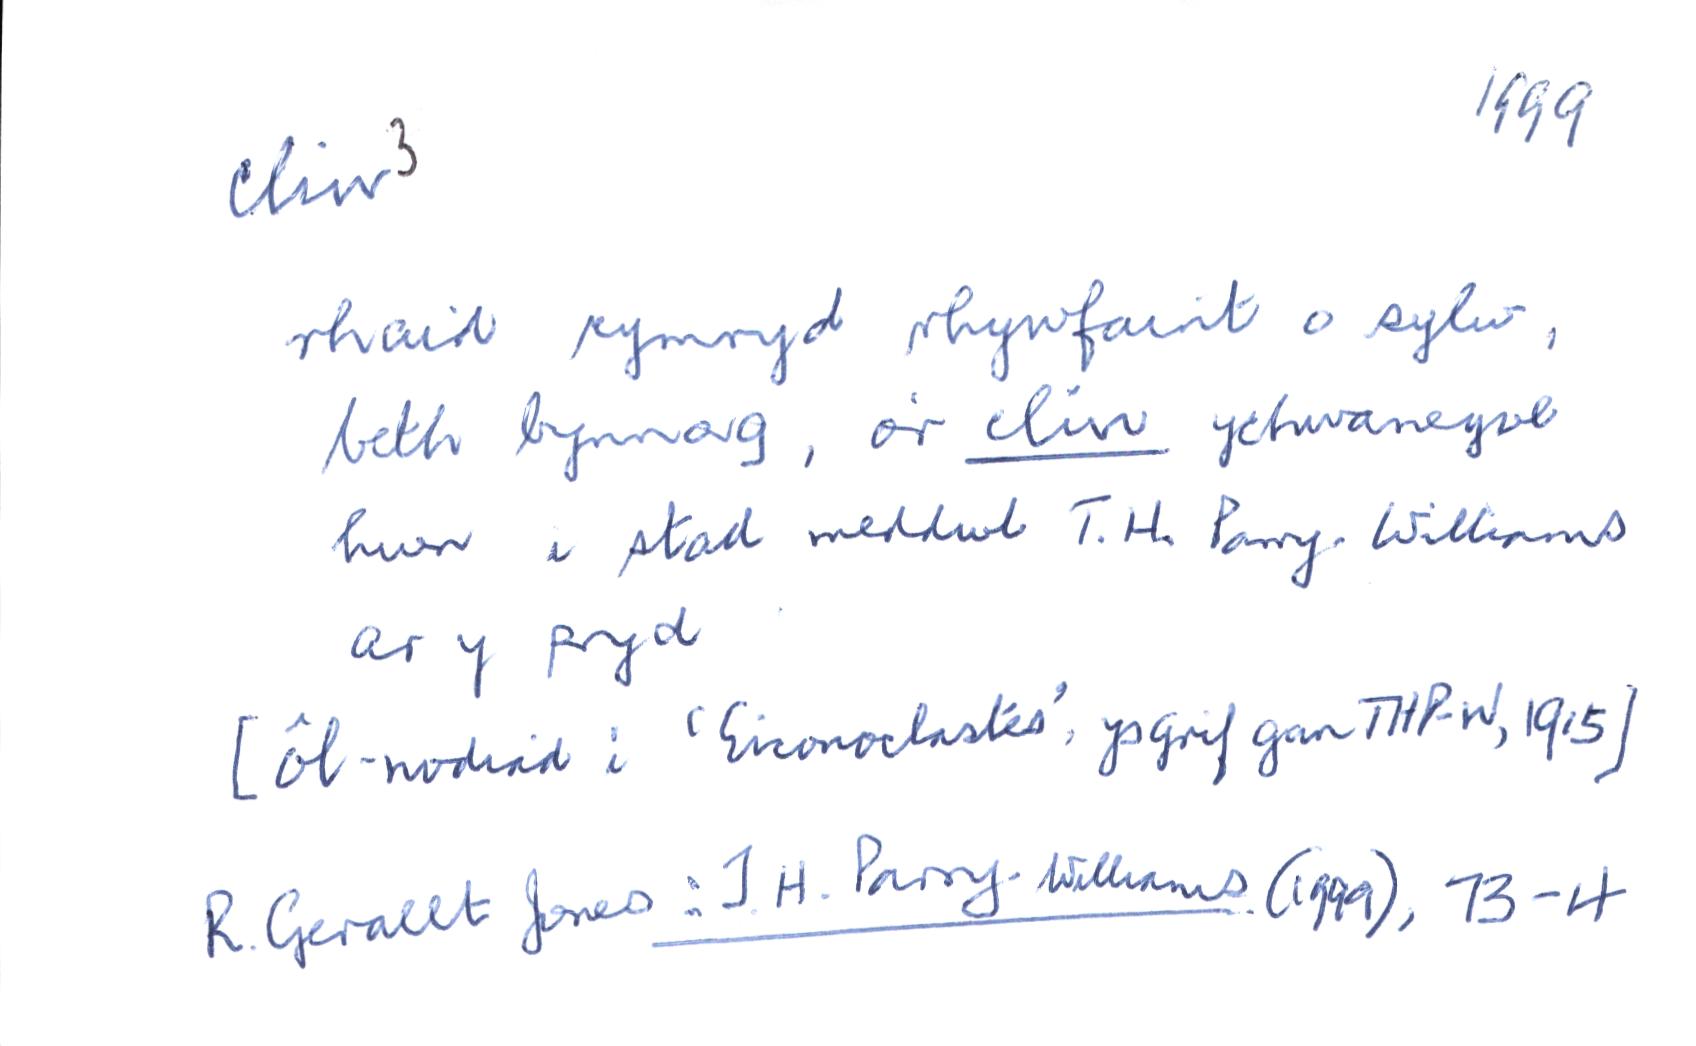 1999
cliw³
rhaid cymryd rhywfaint o sylw,
beth bynnag, o'r cliw ychwanegol
hwn i stad meddwl T. H. Parry-Williams
ar y pryd
[ôl-nodiad i 'Eiconoclastes', ysgrif gan THP-W, 1915]
R. Gerallt Jones: T. H. Parry-Williams (1999), 73-4